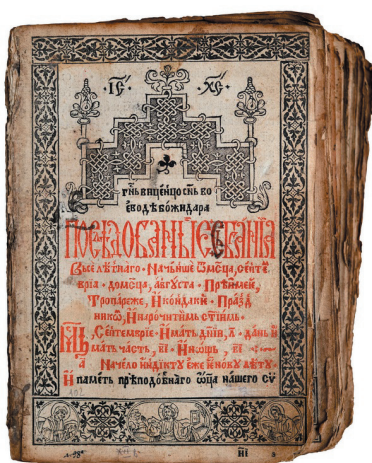 · ІС҃ · ХС҃ ·
гн҃ь виценцо сн҃ь во
еводѣ божидара
вьселѣтнаго · Начьнше ѿмс҃ца, септе
вріа · домс҃ца, августа · Прѣимей,
Тропареже, Ииконда́ки · Празд
никѡ, Иинарочитимь ст҃имь ·
Септемврїе · Имать дн҃їи, л҃ · дань и
мать часть, ві · Инѡщь, ві
а Начело індикту еже и нову лѣту ·
И паметь прѣподобнаго ѡц҃а нашего су